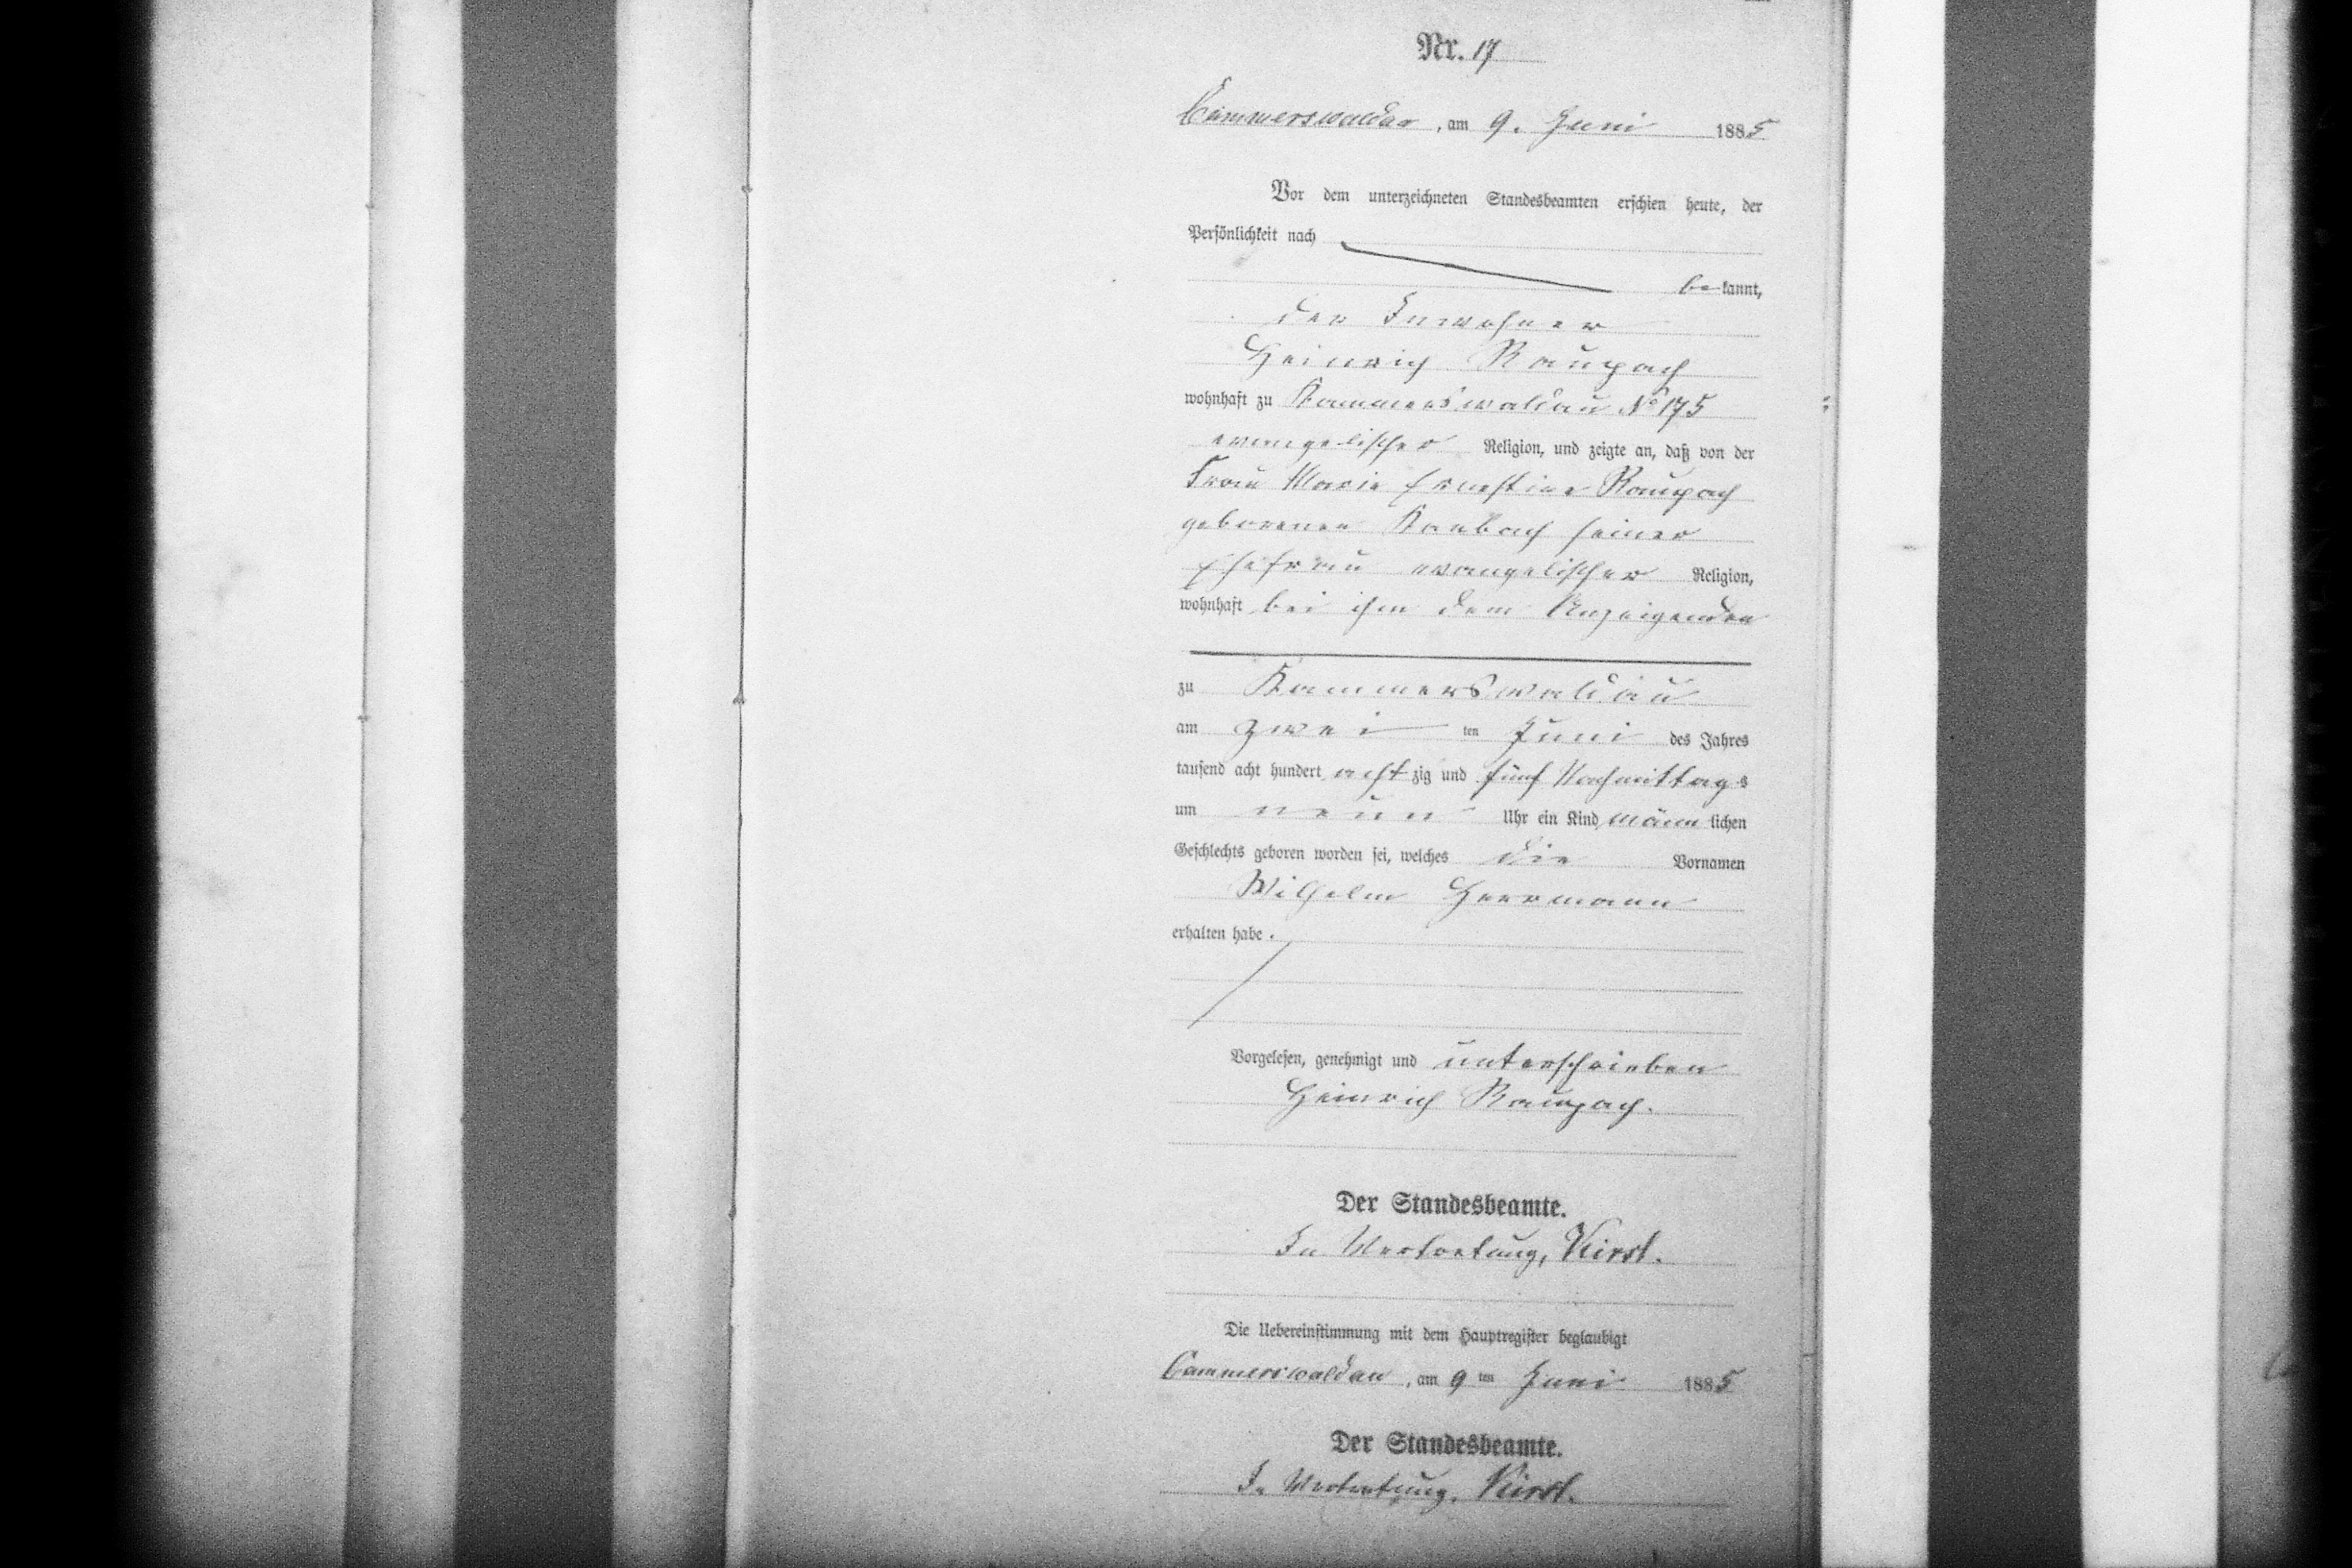 Nr. 17
Cammerswaldau, am 9. Juni 1885
Vor dem unterzeichneten Standesbeamten erschien heute, der
Persönlichkeit nach
bekannt,
der Inwohner
Heinrich Raupach
wohnhaft zu Kammerswaldau No 175
evangelischer Religion, und zeigte an, daß von der
Frau Marie Ernestine Raupach
geborenen seiner
Ehefrau evangelischer Religion,
wohnhaft bei ihm dem Anzeigenden
zu Kammerswaldau
am zwei ten Juni des Jahres
tausend acht hundert achtzig und fünf Nachmittags
um neun Uhr ein Kind männlichen
Geschlechts geboren worden sei, welches die Vornamen
Wilhelm Herrmann
erhalten habe.
Vorgelesen, genehmigt und unterschrieben
Heinrich Raupach.
Der Standesbeamte.
In Vertretung, Kirst.
Die Uebereinstimmung mit dem Hauptregister beglaubigt
Cammerswaldau, am 9 ten Juni 1885
Der Standesbeamte.
In Vertretung. Kirst.